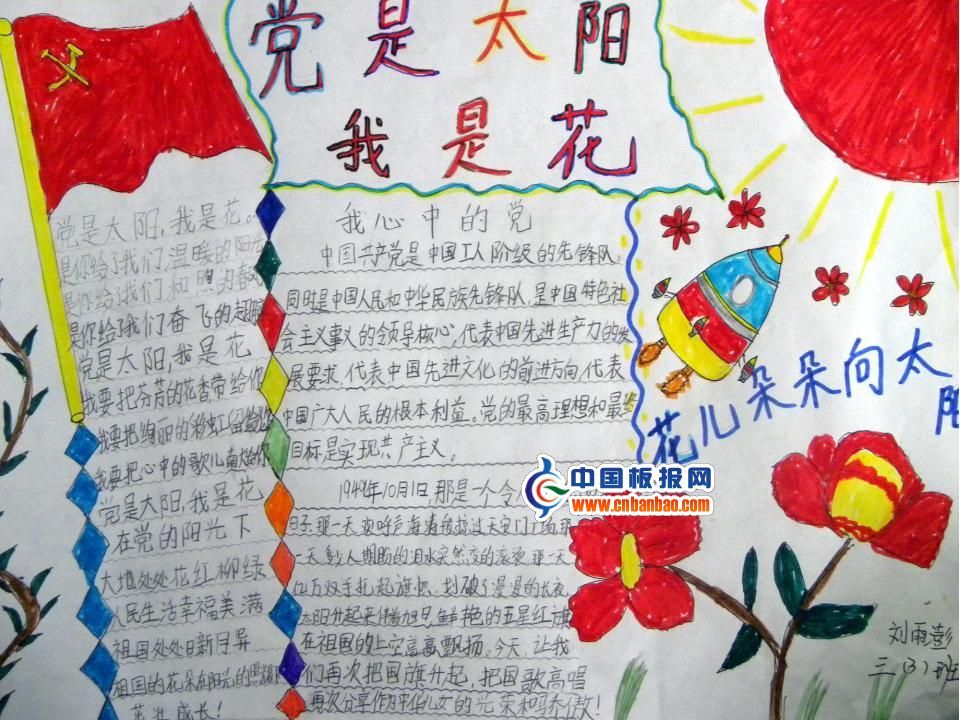 党是太阳
我是花
党是太阳，我是花。
是你给了我们温暖的阳光
是你给了我们和煦的春
是你给了我们奋飞的翅膀
党是太阳，我是花
我要把芬芳的花香带给你
我要把绚丽的彩虹留给你
我要把心中的歌儿献给你
党是太阳，我是花
在党的阳光下
大地处处花红柳绿
人民生活幸福美满
祖国处处日新月异
祖国的花朵在阳光的照耀下
茁壮成长！
我心中的党
中国共产党是中国工人阶级的先锋队，
同时是中国人民和中华民族先锋队，是中国特色社
会主义事义的领导核心，代表中国先进生产力的发
展要求，代表中国先进文化的前进方向，代表
中国广大人民的根本利益。党的最高理想和最终
目标是实现共产主义。
1949年10月1日，那是一个令人
日子，那一天，欢呼声海春般掠过天安门广场，那
一天，多少人期盼的泪水突然变的滚烫，那一天
亿万双手托起旗帜，划破了漫漫的长夜
太阳升起来伴着旭日，鲜艳的五星红旗
在祖国的上空高高飘扬。今天，让我
们再次把国旗升起，把国歌高唱
再次分享作为中华儿女的光荣和骄傲！
花儿朵朵向太
阳
中国板报网
www.cnbanbao.com
刘雨澎
三（3）班